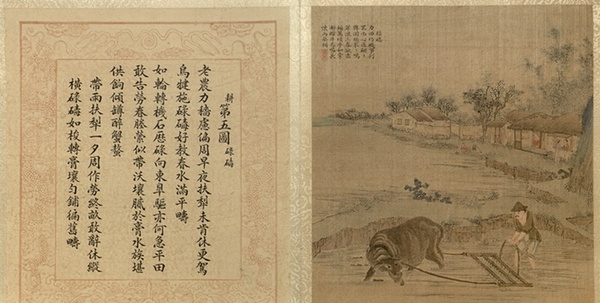 耕 第五圖 碌碡
老農力穡慮偏周早夜扶犁未肯休更駕
烏犍施碌碡好教春水滿平疇
如輪轉機石歷碌向東皋驅亦何急平田
敢告勞春塍縈似帶沃壤膩於膏水族堪
供餉傾罇醉蟹螯
帶雨扶犁一夕周作勞終畝敢辭休縱
橫碌碡如梭轉膏壤勻鋪徧舊疇